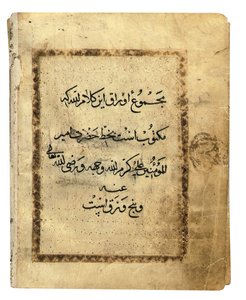 مجموع اوراق این کلام الله که
مکتوبست بخط حضرت امیر
المؤمنین علی کرم الله وجهه ورضی الله تعالی
عنه
و پنج ورق است